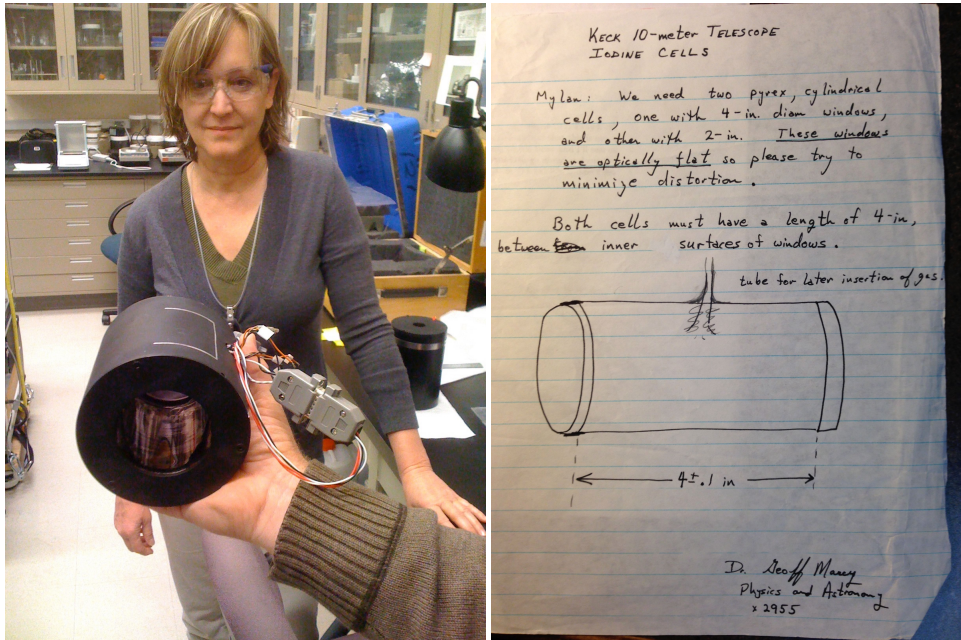 KECK 10-METER TELESCOPE
IODINE CELLS
Mylan: We need two pyrex, cylindrical
cells, one with 4-in. diam windows,
and other with 2-in. These windows
are optically flat so please try to
minimize distortion.
Both cells must have a length of 4-in,
between inner surfaces of windows.
tube for later insertion of gas.
4±.1 in
Dr. Geoff Marcy
Physics and Astronomy
x2955